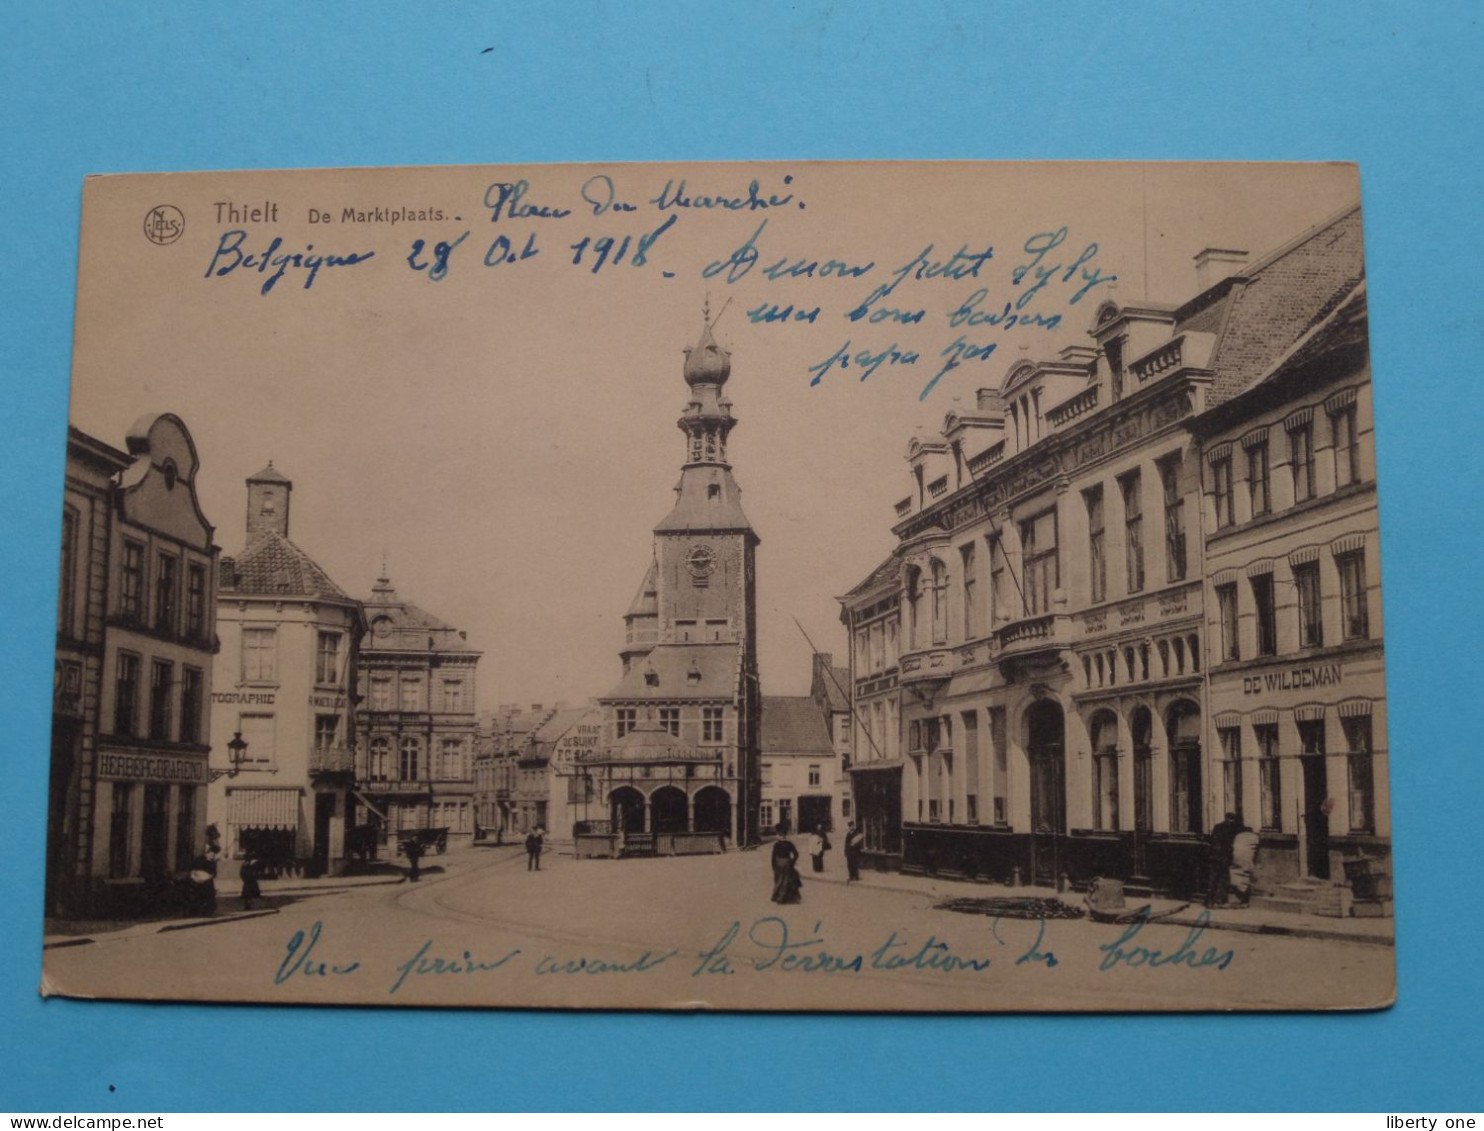 NELS
Thielt De Marktplaats. Place du Marché.
Belgique 28 Oct 1918 - A mon petit Lyly
mes bons baisers
papa
TOGRAPHIE
HERBERG DE AREND
VRAAGT
DE SUIKER
DE WILDEMAN
Vue prise avant la dévastation des boches
liberty one